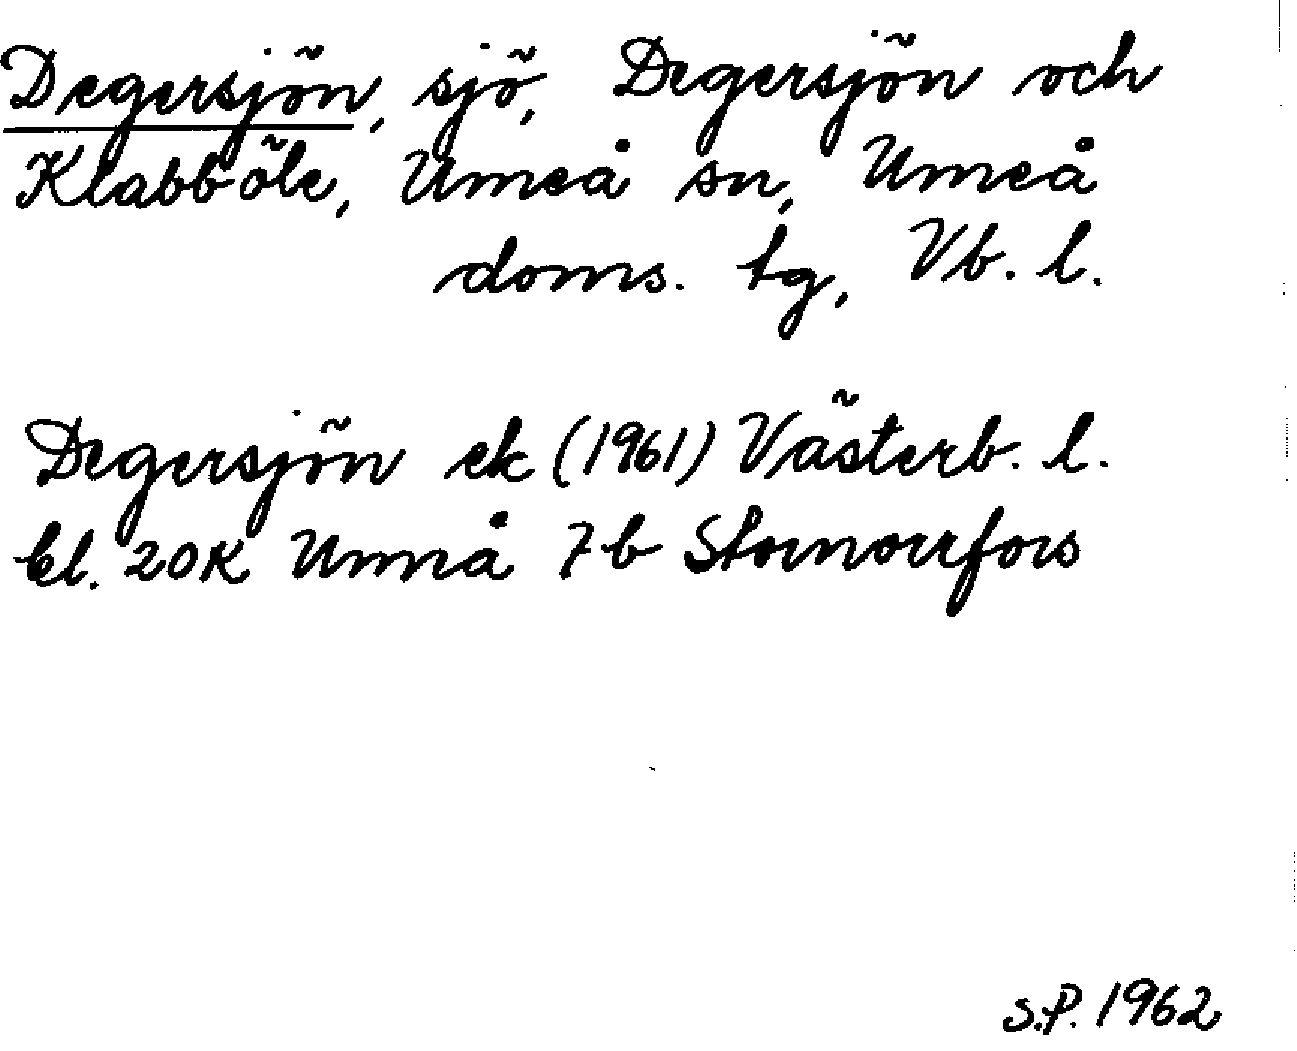 Degersjön, sjö, Degersjön och
Klabböle, Umeå sn, Umeå
doms. tg, Vb. l.
Degersjön ek (1961) Västerb. l.
bl. 20K Umeå 7b Stornorrfors
S.P. 1962